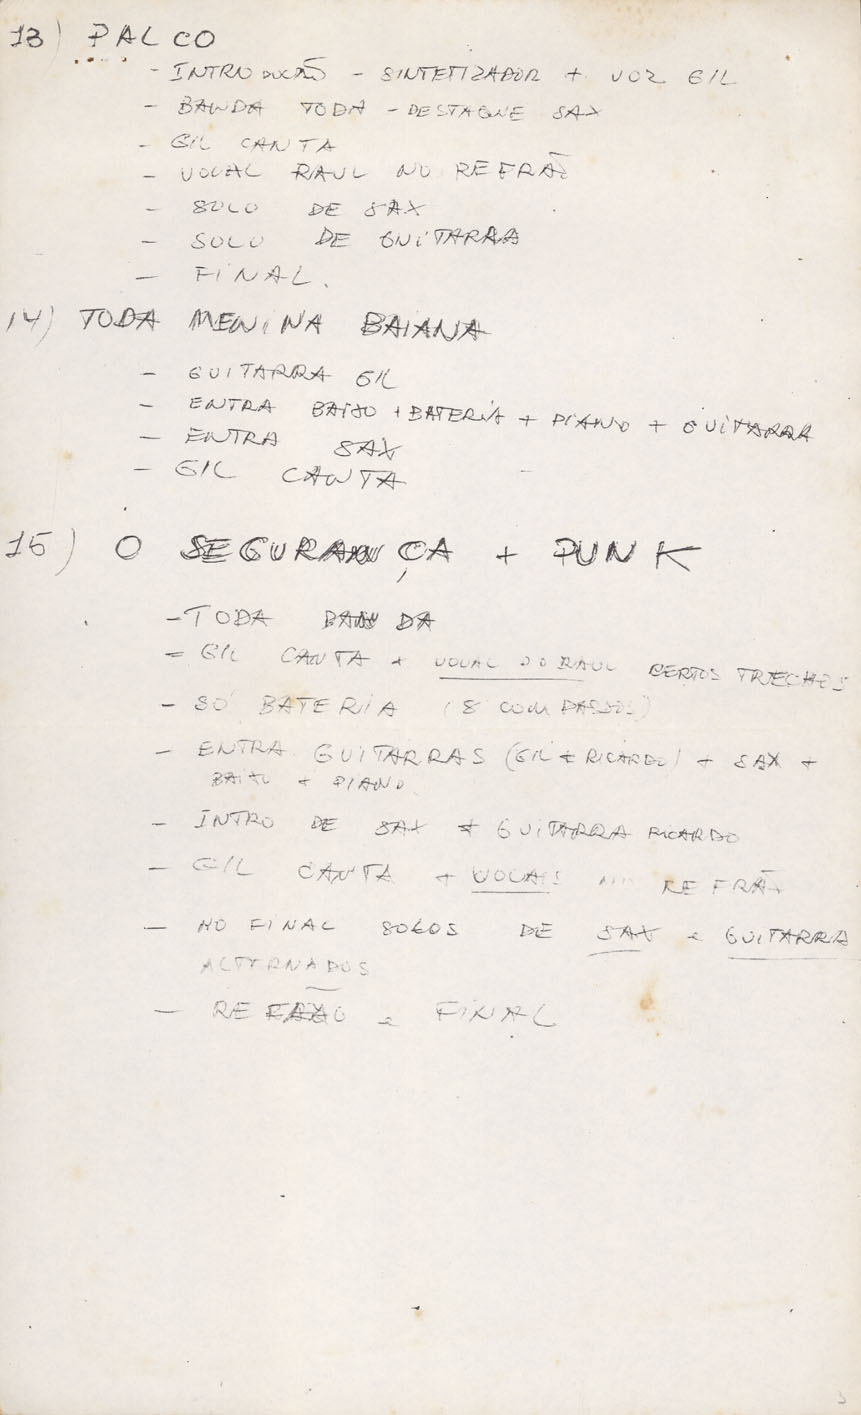 13) PALCO
- INTRODUÇÃO - SINTETIZADOR + VOZ GIL
- BANDA TODA - DESTAQUE SAX
- GIL CANTA
- VOCAL RAUL NO REFRÃO
- SOLO DE SAX
- SOLO DE GUITARRA
- FINAL.
14) TODA MENINA BAIANA
- GUITARRA GIL
- ENTRA BAIXO + BATERIA + PIANO + GUITARRA
- ENTRA SAX
- GIL CANTA
15) O SEGURANÇA + PUNK
- TODA BANDA
- GIL CANTA + VOCAL DO RAUL CERTOS TRECHOS
- SÓ BATERIA (8 COMPASSOS)
- ENTRA GUITARRAS (GIL + RICARDO) + SAX +
BAIXO + PIANO.
- INTRO DE SAX + GUITARRA RICARDO
- GIL CANTA + VOCAIS NO REFRÃO
- NO FINAL SOLOS DE SAX e GUITARRA
ALTERNADOS
- REFRÃO e FINAL